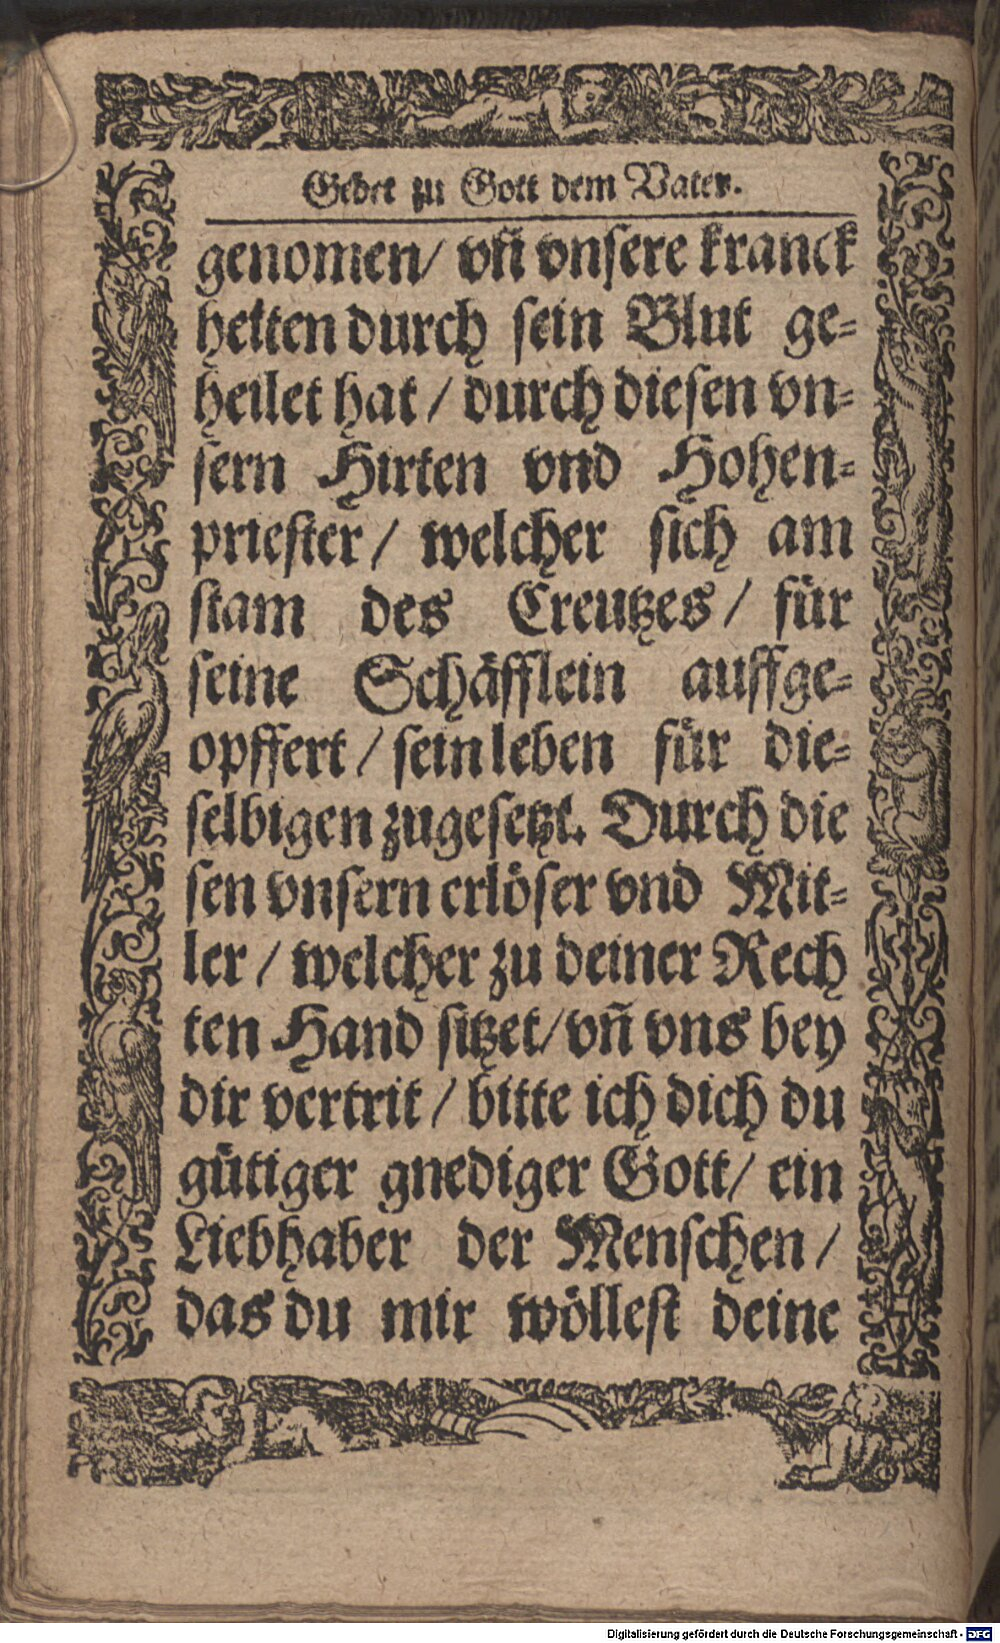 Gebet zu Gott dem Vater.
genomen/ vñ vnsere kranck
heiten durch sein Blut ge-
heilet hat / durch diesen vn-
sern Hirten vnd Hohen-
priester / welcher sich am
stam des Creutzes / für
seine Schäfflein auffge-
opffert / sein leben für die-
selbigen zugesetzt. Durch die
sen vnsern erlöser vnd Mit-
ler / welcher zu deiner Rech
ten Hand sitzet/ vñ vns bey
dir vertrit / bitte ich dich du
gütiger gnediger Gott/ ein
Liebhaber der Menschen /
das du mir wöllest deine
Digitalisierung gefördert durch die Deutsche Forschungsgemeinschaft - DFG